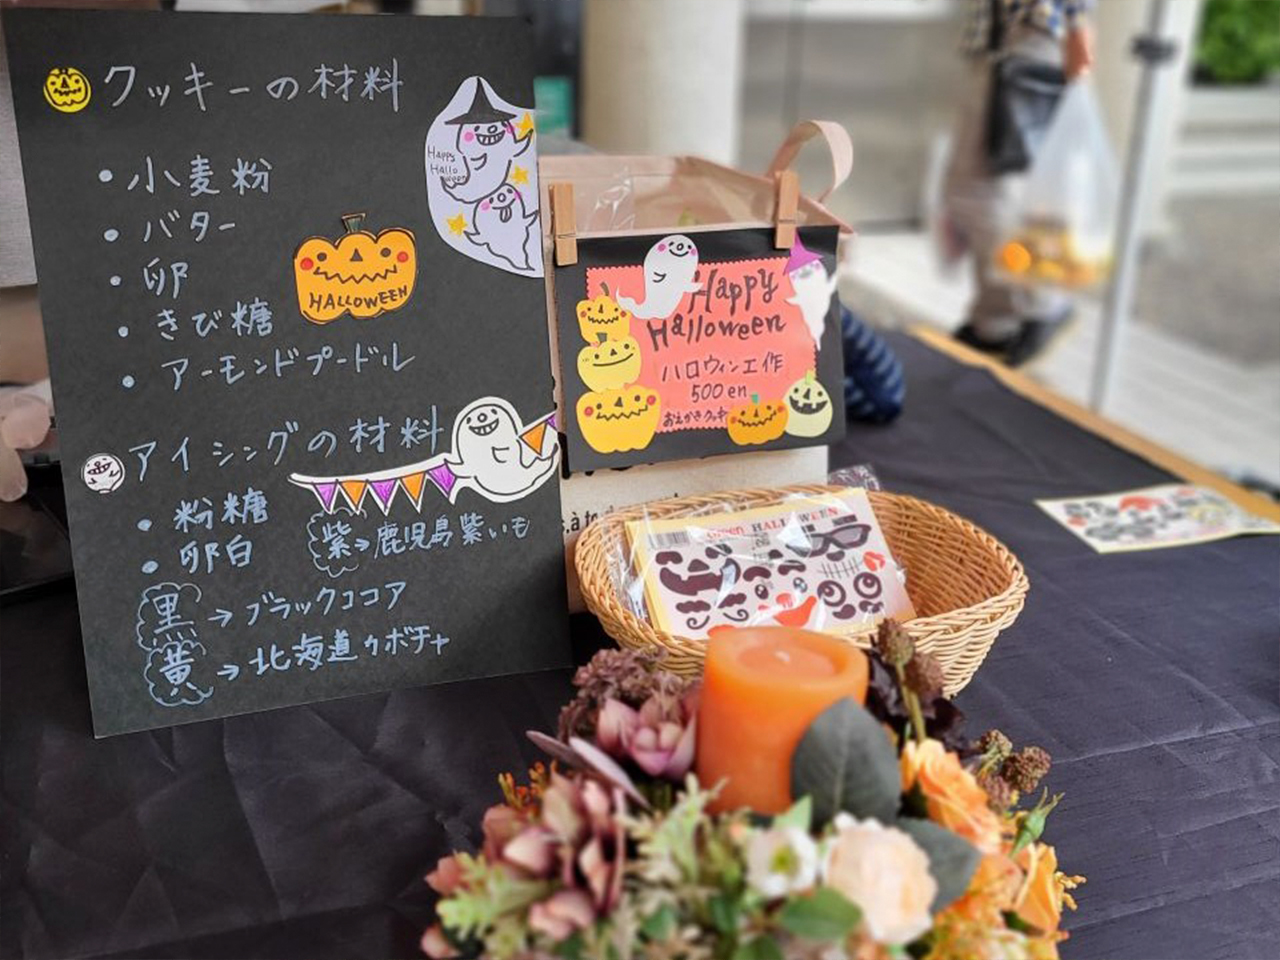 クッキーの材料
・小麦粉
・バター
・卵
・きび糖
・アーモンドプードル
アイシングの材料
・粉糖
・卵白
紫→鹿児島紫いも
黒→ブラックココア
黄→北海道カボチャ
Happy
Hallo
ween
HALLOWEEN
Happy
Halloween
ハロウィン工作
500en
おえかきクッキー
HALLOWEEN